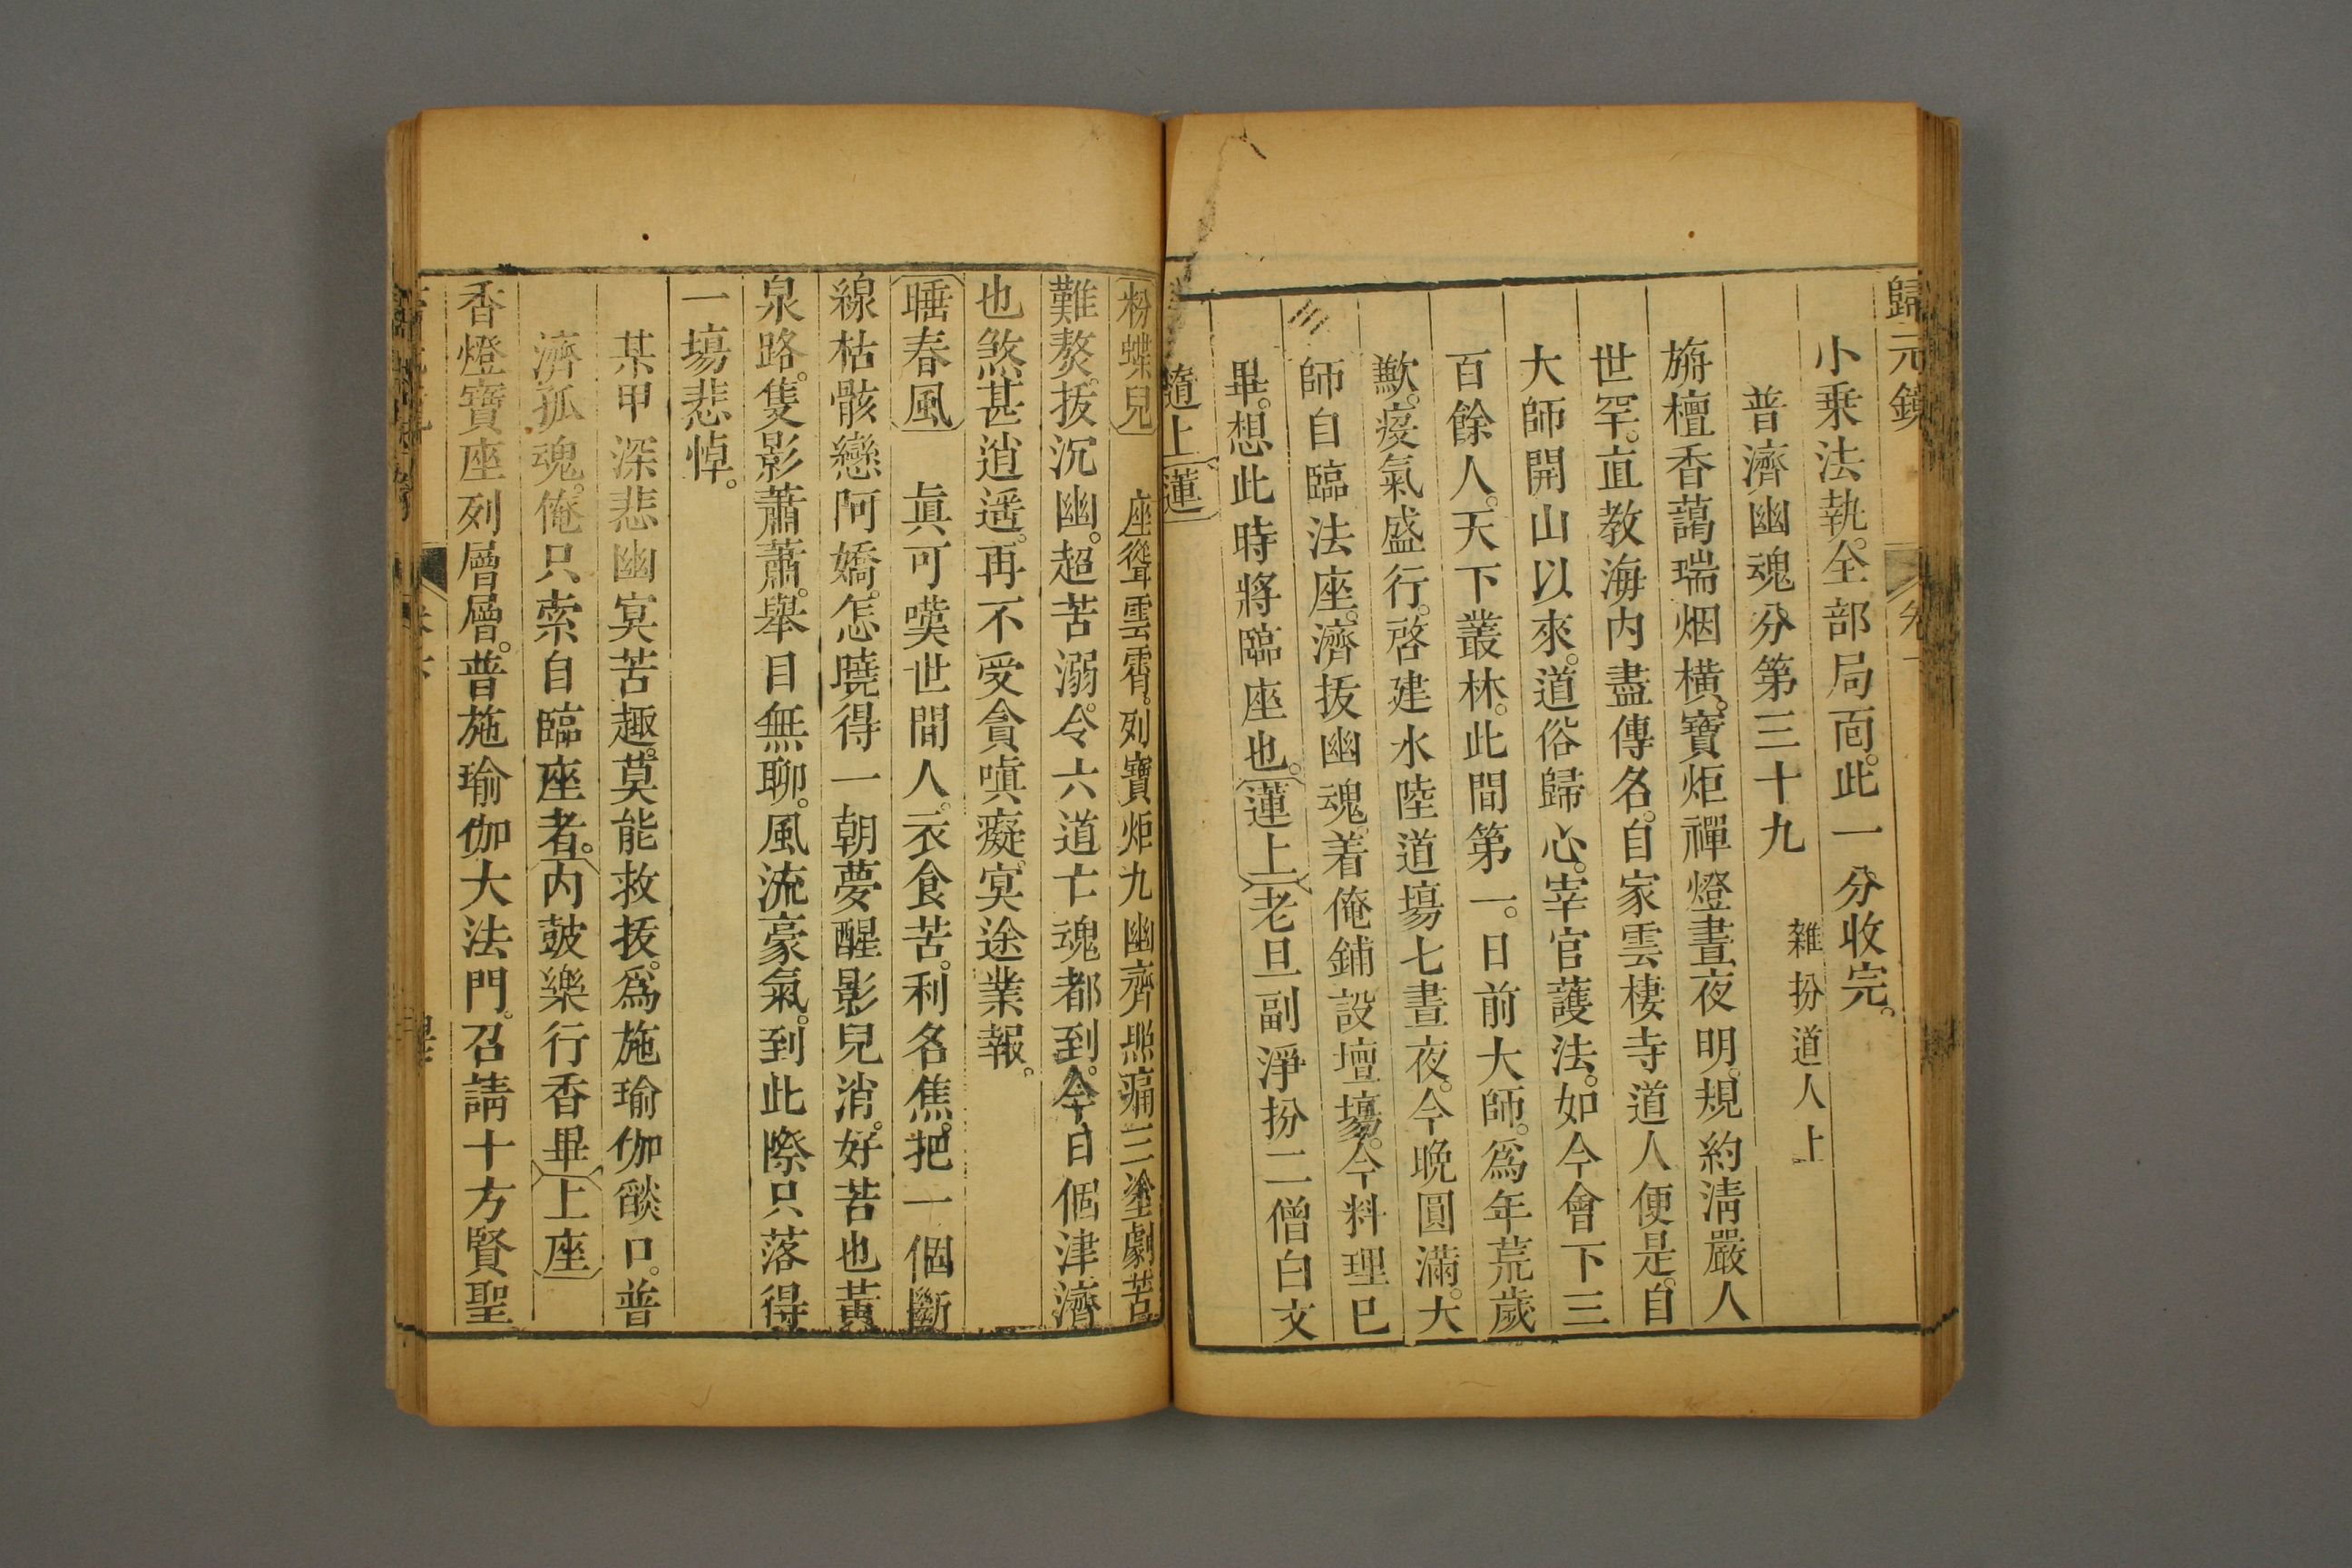 歸元鏡 卷
小乘法執。全部局面。此一分收完。
普濟幽魂分第三十九 雜扮道人上
旃檀香藹瑞烟橫。寶炬禪燈晝夜明。規約清嚴人
世罕。直教海內盡傳名。自家雲棲寺道人便是。自
大師開山以來。道俗歸心。宰官護法。如今會下三
百餘人。天下叢林。此間第一。日前大師。爲年荒歲
歉。疫氣盛行。啓建水陸道場七晝夜。今晚圓滿。大
師自臨法座。濟拔幽魂。着俺鋪設壇場。今料理已
畢。想此時將臨座也。蓮上老旦副淨扮二僧白文
隨上蓮
粉蝶兒 座聳雲霄。列寶炬九幽齊照痛三塗劇苦
難熬。拔沉幽。超苦溺。令六道亡魂都到。今日個津濟
也煞甚逍遥。再不受貪嗔癡。冥途業報。
睡春風 眞可嘆世間人。衣食苦。利名焦。把一個斷
線枯骸戀阿嬌。怎曉得一朝夢醒影兒消。好苦也黃
泉路。隻影蕭蕭。舉目無聊。風流豪氣。到此際只落得
一場悲悼。
某甲深悲幽冥苦趣。莫能救拔。爲施瑜伽餤口。普
濟孤魂。俺只索自臨座者。內鼓樂行香畢上座
香燈寶座列層層。普施瑜伽大法門。召請十方賢聖
卷下